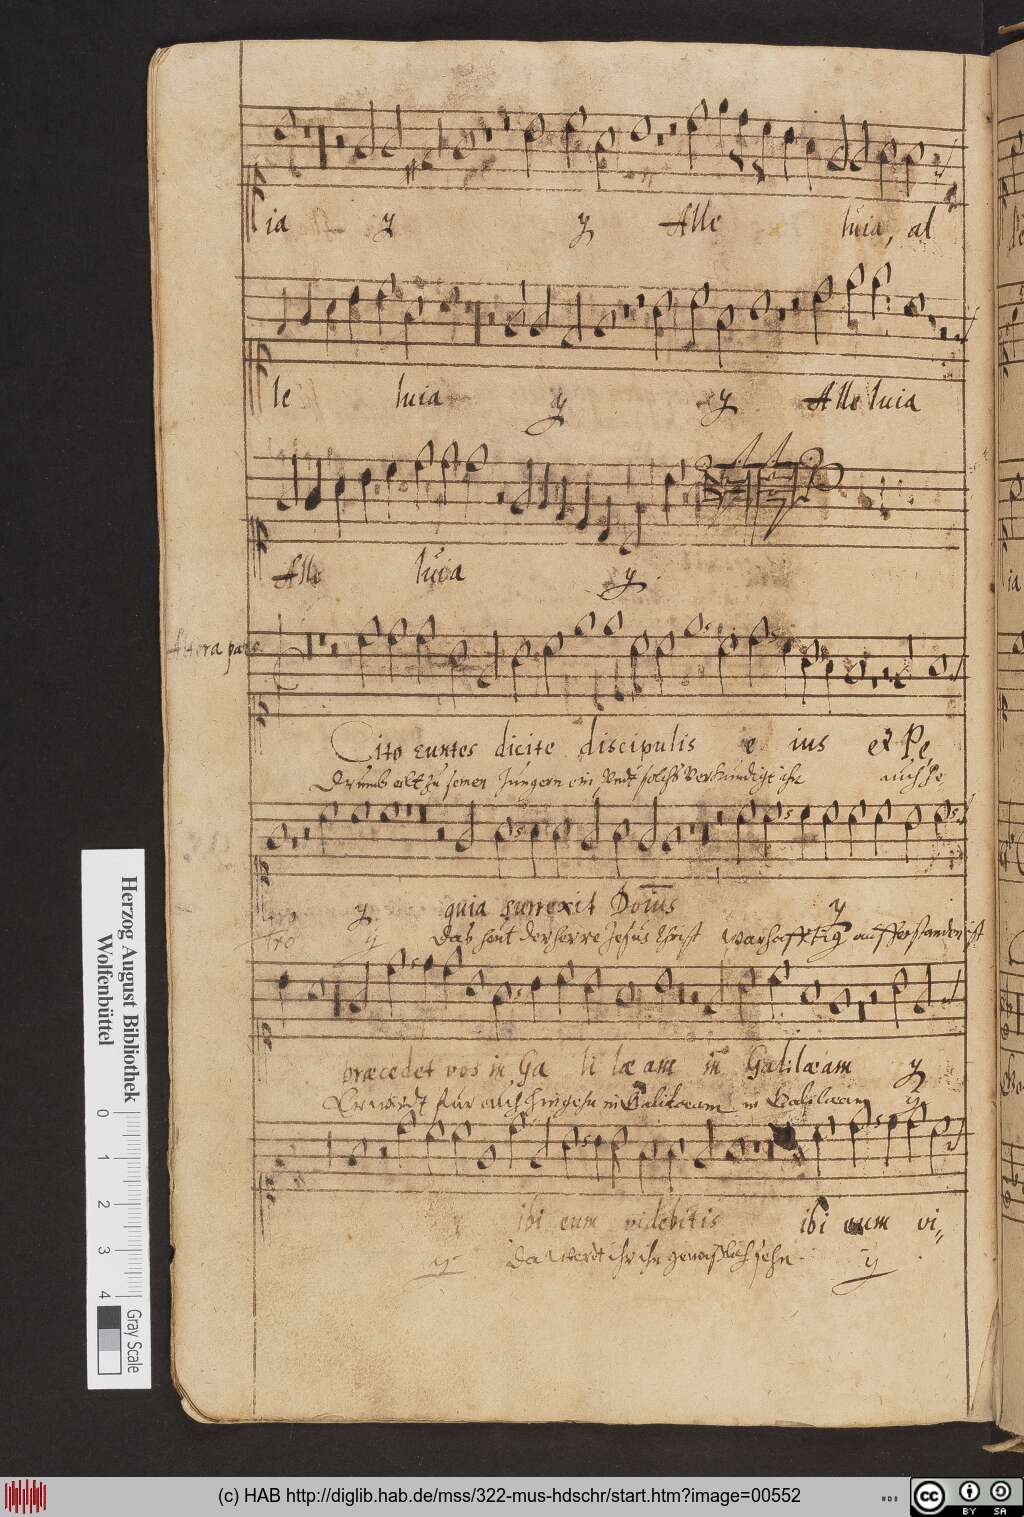 ia y y Alle luia, al
le luia y y Alle luia
Alle luia y
Altera pars
Cito euntes dicite discipulis e ius et Pe,
Drumb eilt zu seinen Jüngern ein undt solchs verkündigt ihn auch Pe,
tro y quia surrexit Dom̄s y
tro y das heut der herre Jesus Christ warhafftig aufferstanden ist
præcedet vos in Ga li læ am in Galilæam y
Er wirdt für euch hingehn in Galilæam in Galilæam y
y ibi eum videbitis ibi eum vi,,
y Da werdt ihr ihn gewißlich sehn y
Herzog August Bibliothek
Wolfenbüttel
0 1 2 3 4
Gray Scale
(c) HAB http://diglib.hab.de/mss/322-mus-hdschr/start.htm?image=00552
cc BY SA